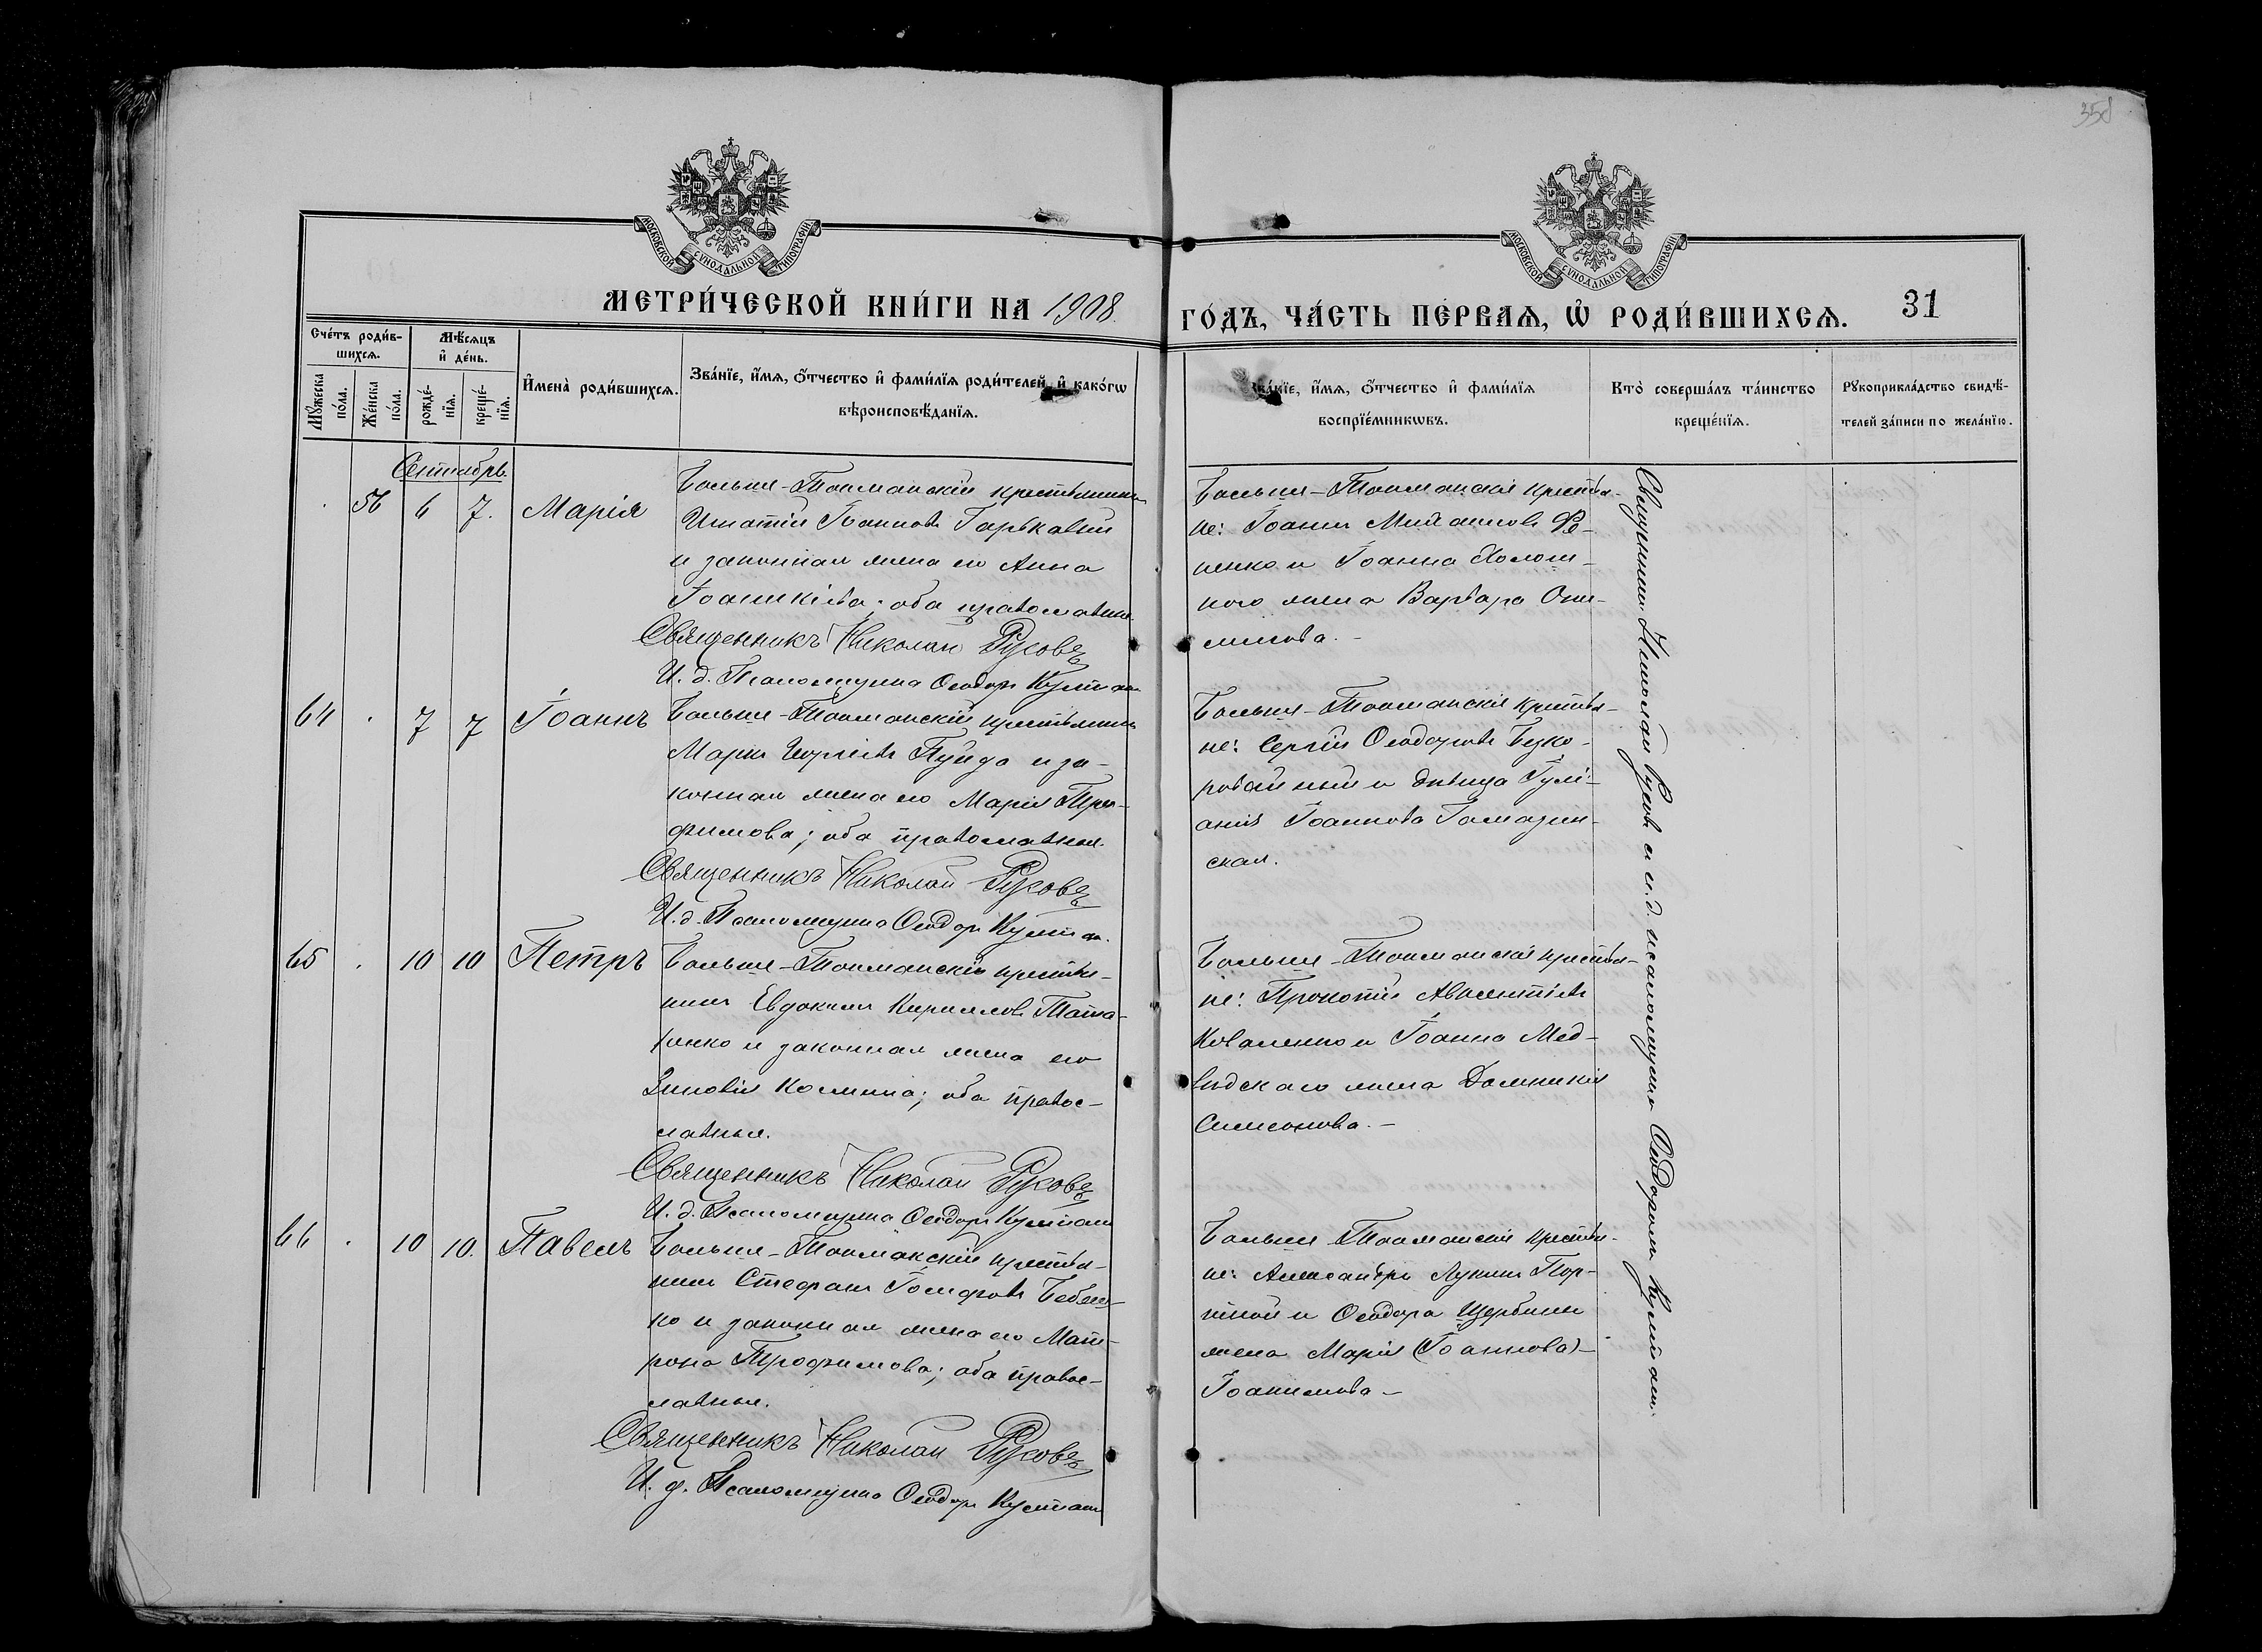 358
МОСКОВСКОЙ СѴНОДАЛЬНОЙ ТИПОГРАФІИ
МОСКОВСКОЙ СѴНОДАЛЬНОЙ ТИПОГРАФІИ
МЕТРИ́ЧЕСКОЙ КНИ́ГИ НА 1908.
ГО́ДЪ, ЧА́СТЬ ПЕ́РВАѦ, Ѽ РОДИ́ВШИХСѦ.
31
Сче́тъ роди́в-
шихсѧ.
Мꙋ́жеска по́ла.
Же́нска по́ла.
Мѣ́сѧцъ
и҆ де́нь.
рожде́-
нїѧ.
креще́-
нїѧ.
И҆мена̀ роди́вшихсѧ.
Зва́нїе, и҆́мѧ, ѻ҆́тчество и҆ фами́лїѧ роди́телей, и҆ како́гѡ
вѣроисповѣ́данїѧ.
Зва́нїе, и҆́мѧ, ѻ҆́тчество и҆ фами́лїѧ
воспрїе́мникѡвъ.
Кто̀ соверша́лъ та́инство
креще́нїѧ.
Рꙋкоприкла́дство свидѣ́-
телей за́писи по жела́нїю.
Сентябрь.
56 6 7. Марія
Больше-Токмакскій крестьянинъ
Игнатій Іоанновъ Горькавый
и законная жена его Анна
Іоанникіева; оба православные.
Священникъ Николай Русовъ
И. д. Псаломщика Ѳеодоръ
Больше-Токмакскіе крестья-
не: Іоаннъ Михаиловъ
ненко и Іоанна Холош-
ного жена Варвара Они-
симова. –
64 7 7 Іоаннъ
Больше-Токмакскій крестьянинъ
Маркъ Георгіевъ Пунда и за-
конная жена его Марія Тро-
фимова; оба православные.
Священникъ Николай Русовъ
И. д. Псаломщика Ѳеодоръ
Больше-Токмакскіе крестья-
не: Сергій Ѳеодоровъ Безко-
ровайный и дѣвица Іулі-
анія Іоаннова
ская.
65 10 10 Петръ
Больше-Токмакскій крестья-
нинъ Евдокимъ Кирилловъ Тата-
ренко и законная жена его
Зиновія Космина; оба правос-
лавные.
Священникъ Николай Русовъ
И. д. Псаломщика Ѳеодоръ
Больше-Токмакскіе крестья-
не: Прокопій Авксентіевъ
Коваленко и Іоанна Мед-
вѣдскаго жена Домникія
Симеонова. –
66 10 10. Павелъ
Больше-Токмакскій крестья-
нинъ Стефанъ Іосифовъ Бабен-
ко и законная жена его Мат-
рона Трофимова; оба правос-
лавные.
Священникъ Николай Русовъ
И. д. Псаломщика Ѳеодоръ
Больше-Токмакскіе крестья-
не: Александръ Лукинъ Пор-
тной и Ѳеодора Щербины
жена Марія (Іоаннова) –
Іоакимова –
Священникъ Николай Русовъ и и. д. псаломщика Ѳеодоръ